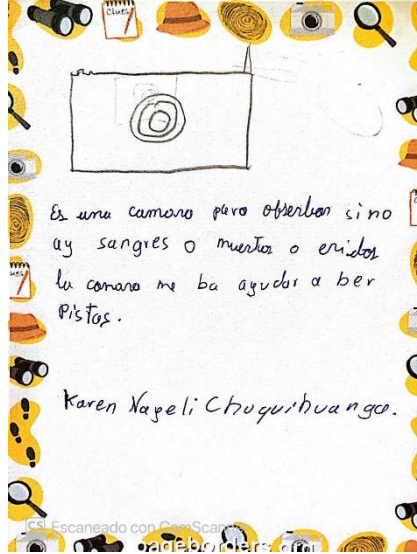 Clues
Es una camara para obserbar sino
ay sangres o muertos o eridos
la camara me ba ayudar a ber
Pistas.
Karen Nayeli Chuquihuanga.
CS Escaneado con CamScanner
pageborders.org